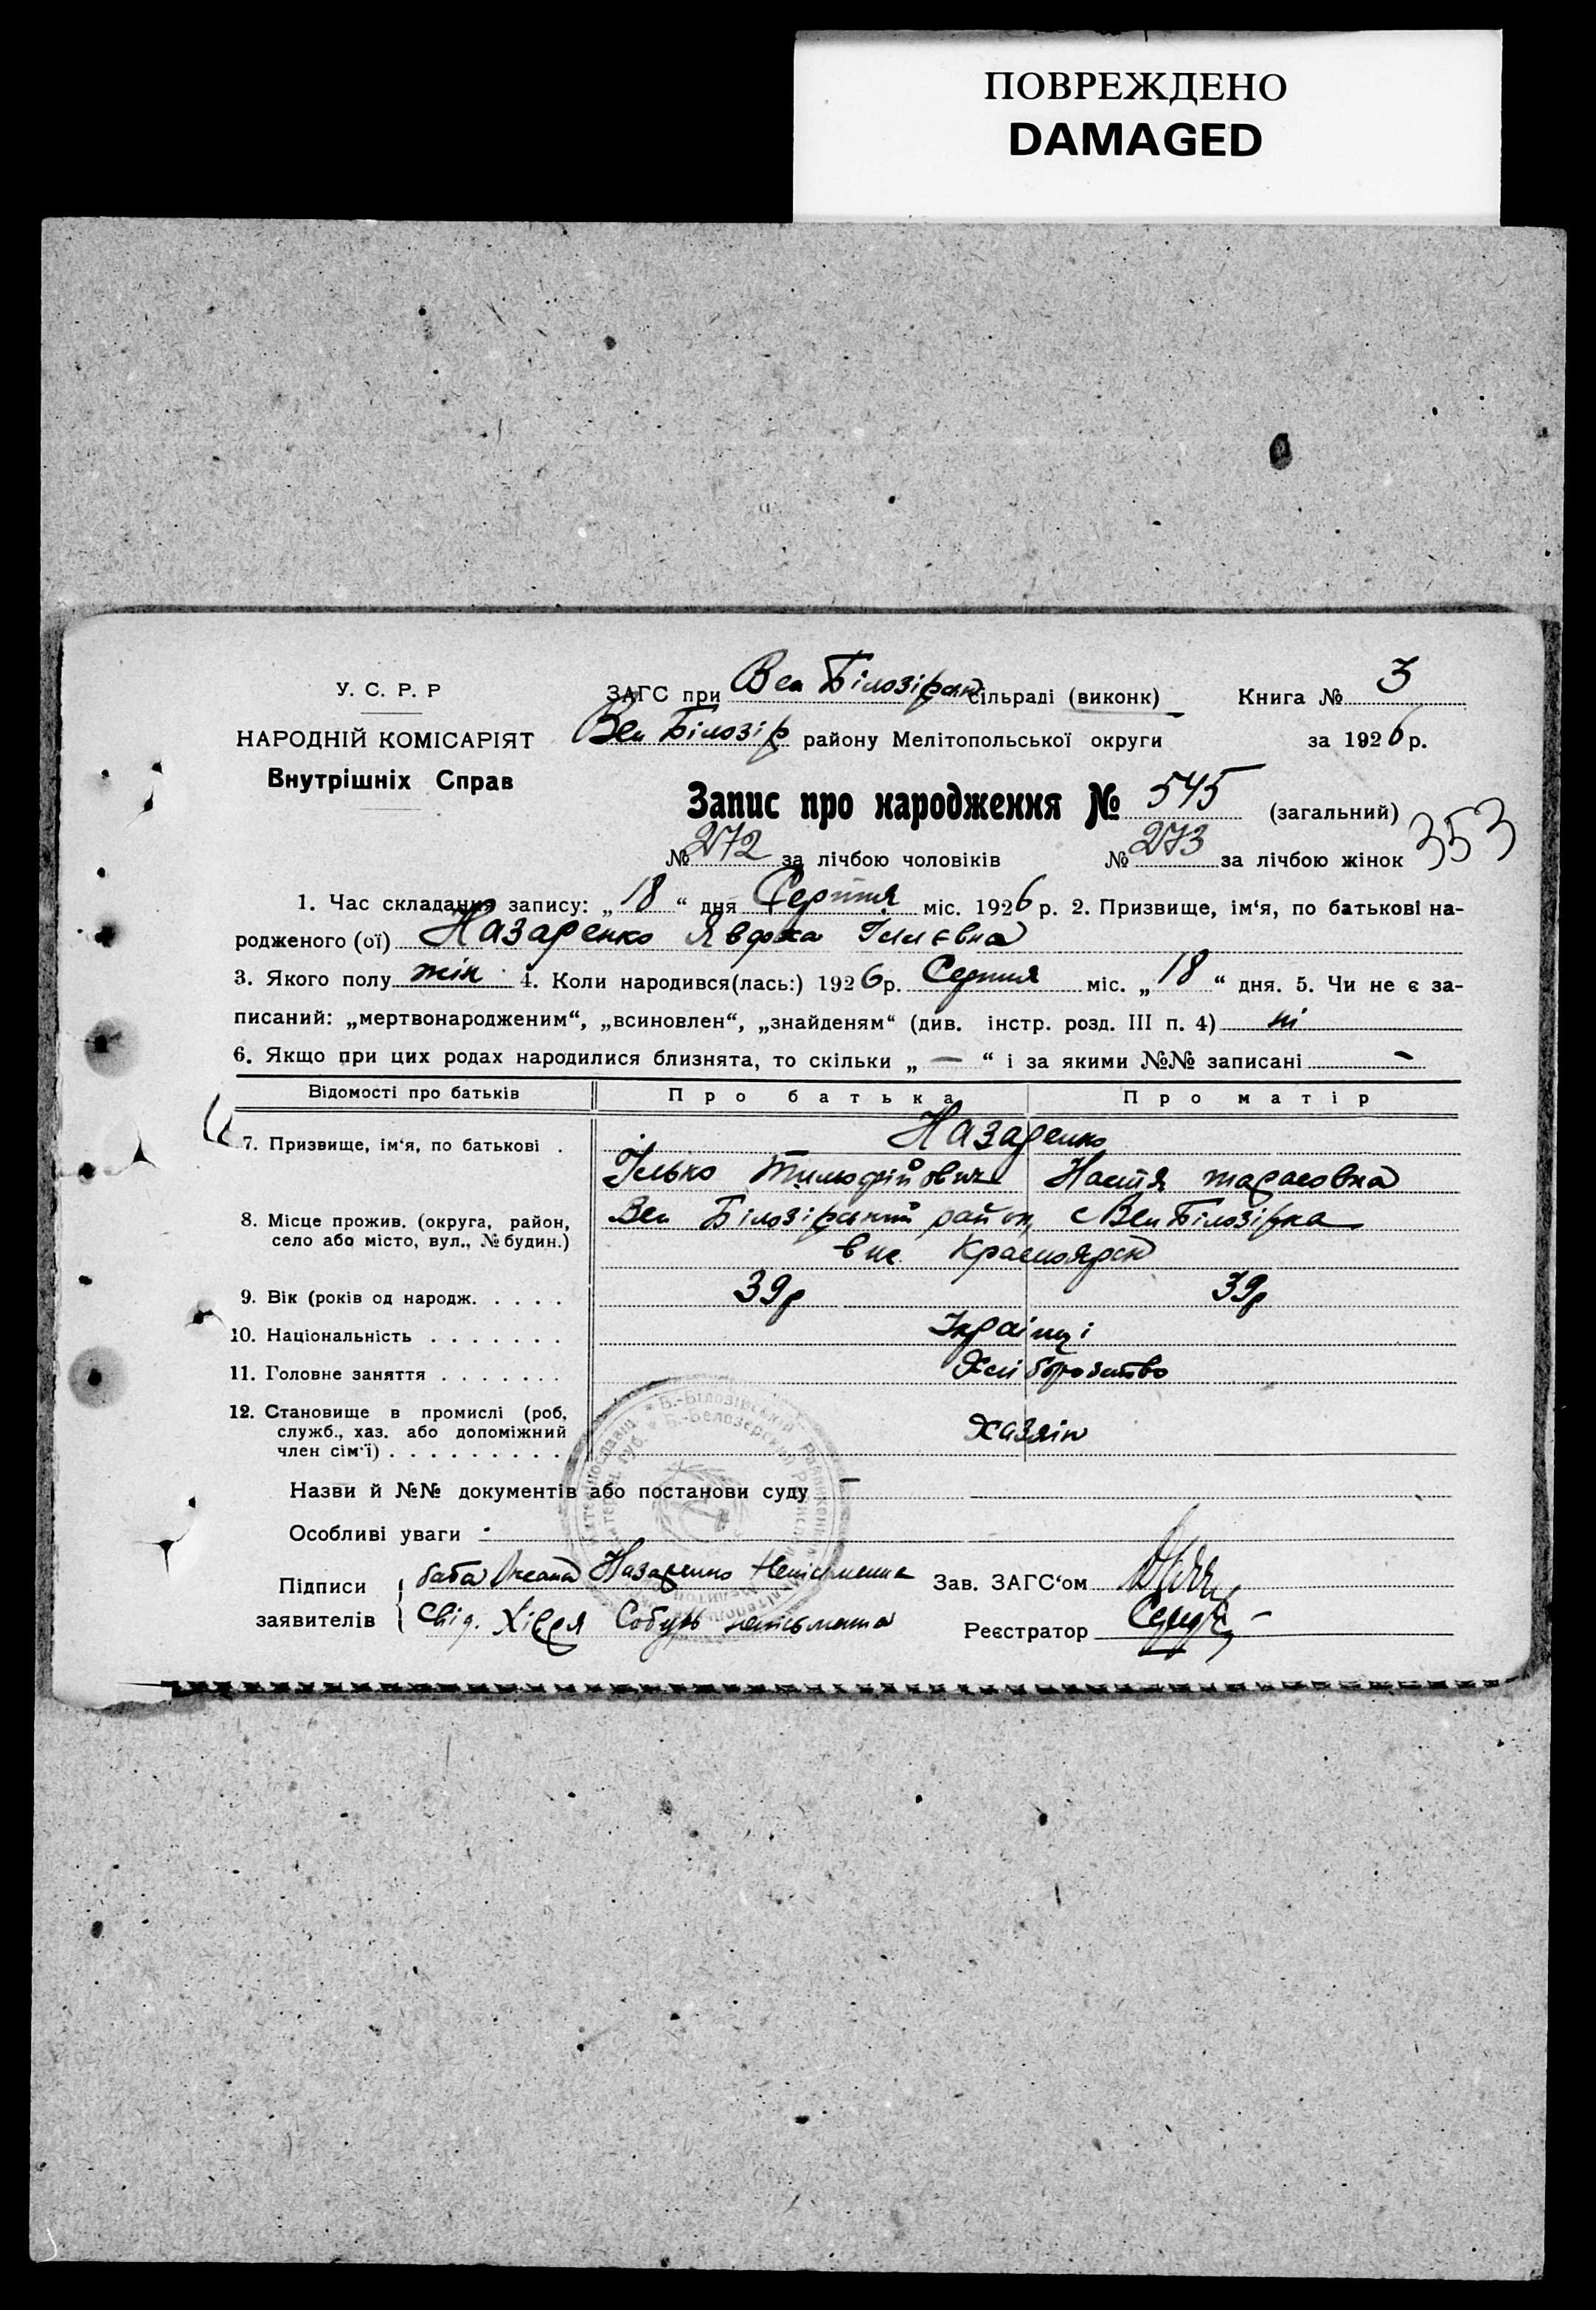 ПОВРЕЖДЕНО
DAMAGED
У. С. Р. Р
НАРОДНІЙ КОМІСАРІЯТ
Внутрішніх Справ
ЗАГС при Вел Білозірськ сільраді (виконк) Книга № 3
Вел Білозір району Мелітопольської округи за 1926 р.
Запис про народження № 545 (загальний)
№ 272 за лічбою чоловіків № 273 за лічбою жінок 353
1. Час складання запису: „18“ дня Серпня міс. 1926 р. 2. Призвище, ім‘я, по батькові на-
родженого (ої) Назаренко Явдоха Іллєвна
3. Якого полу жін 4. Коли народився(лась:) 1926р. Серпня міс. „18“ дня. 5. Чи не є за-
писаний: „мертвонародженим“, „всиновлен“, „знайденям“ (див. інстр. розд. III п. 4) ні
6. Якщо при цих родах народилися близнята, то скільки „—“ і за якими №№ записані —
Відомості про батьків Про батька Про матір
7. Призвище, ім‘я, по батькові . Назаренко
Ілько Тимофійович Настя Тарасовна
8. Місце прожив. (округа, район, Вел Білозірський район, с Вел Білозірка
село або місто, вул., № будин.)
9. Вік (років од народж. . . . . 39р 39р
10. Національність . . . . . . . Українці
11. Головне заняття . . . . . . . Хліборобство
12. Становище в промислі (роб,
служб., хаз. або допоміжний Хазяін
член сім‘ї) . . . . . . . . .
Назви й №№ документів або постанови суду —
Особливі уваги
Підписи баба Оксана Назаренко Неписьменна Зав. ЗАГС‘ом
заявителів Свід. Хівря Собур неписьменна Реєстратор